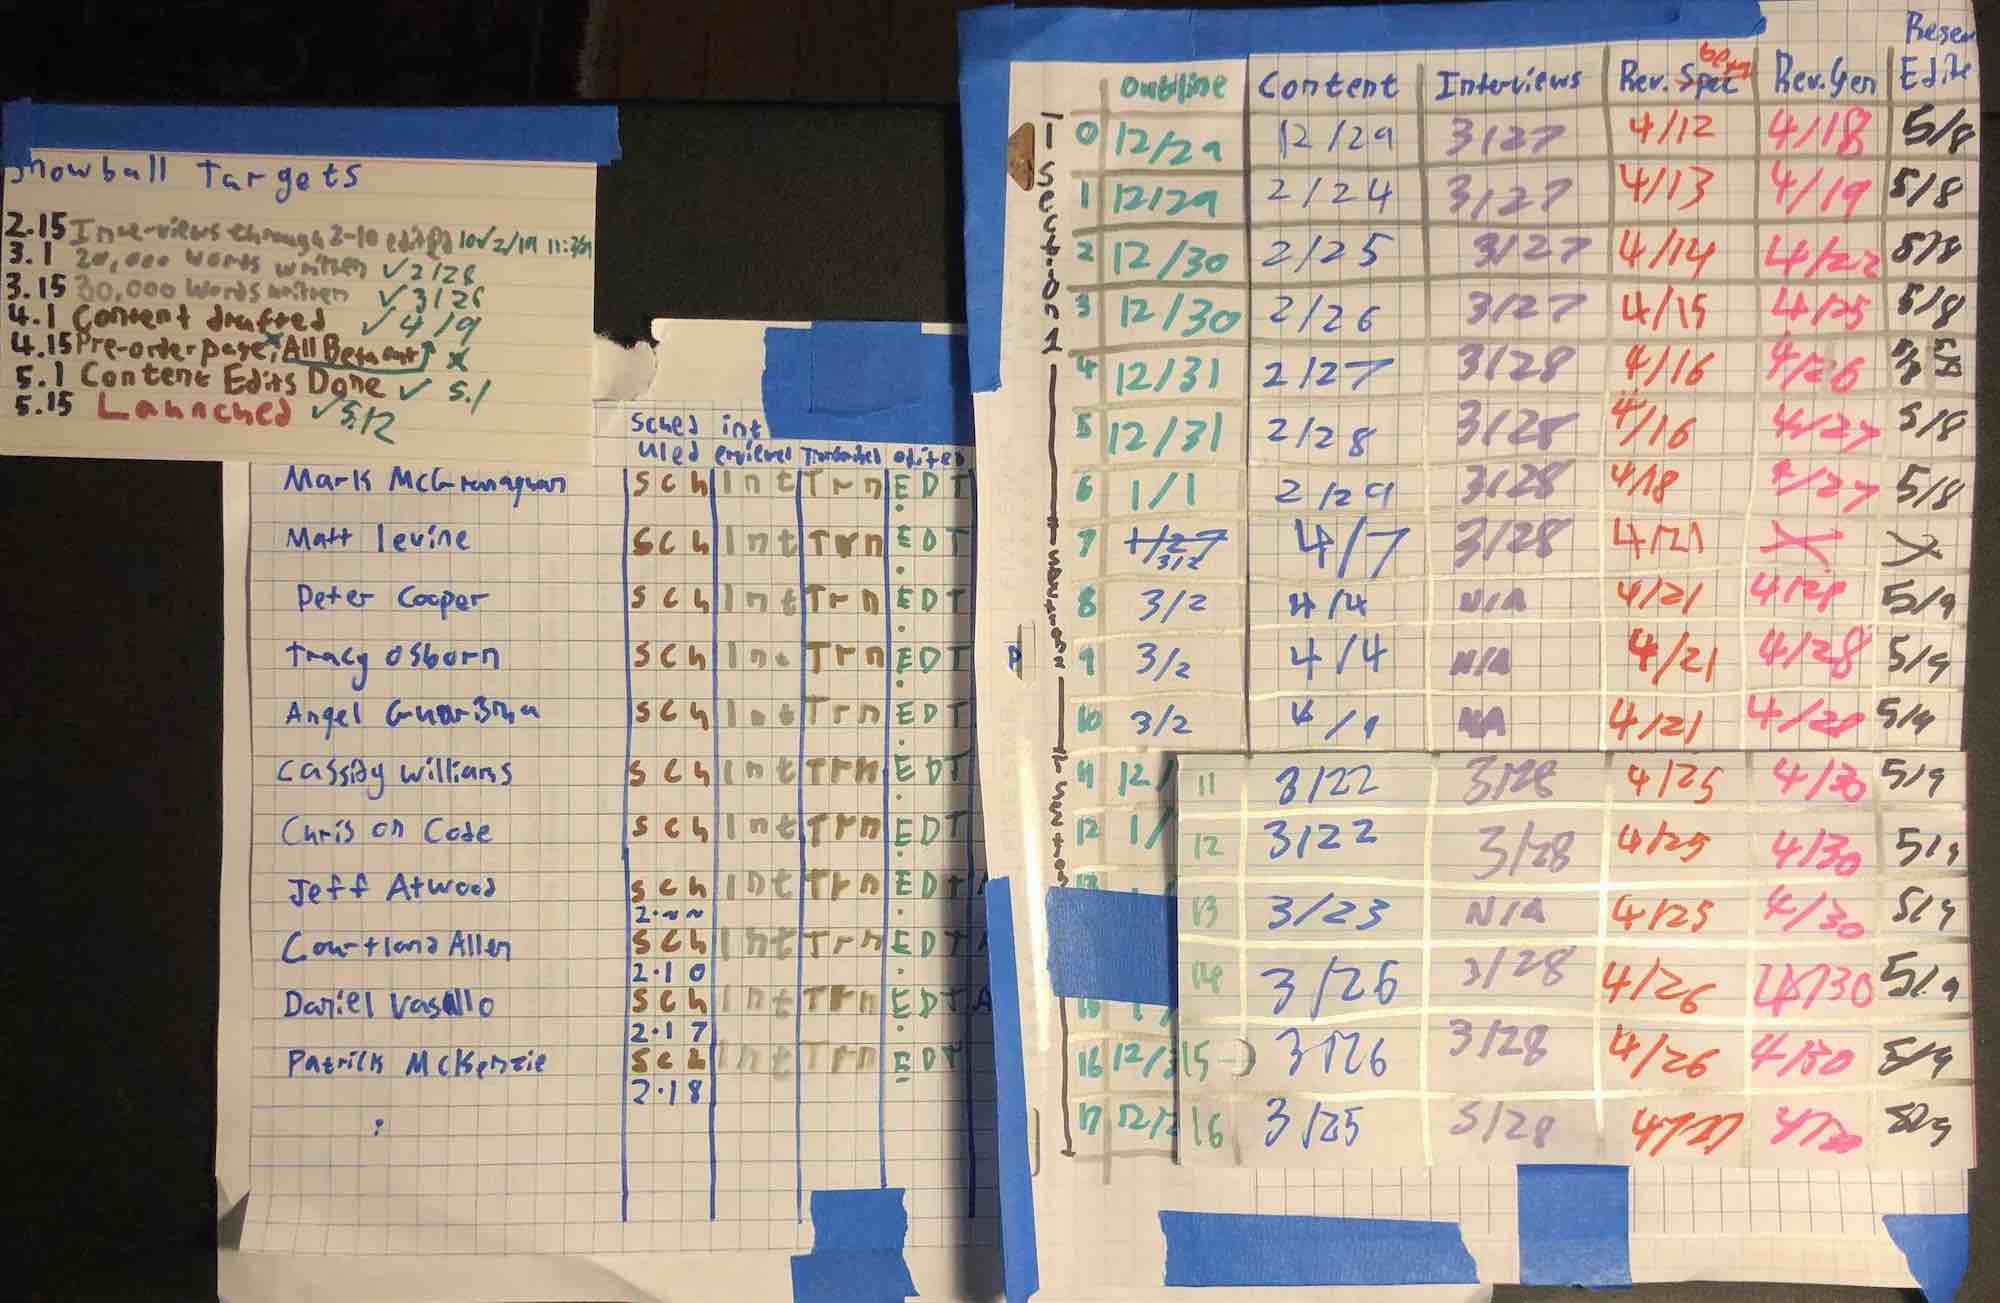 Targets
2.15 Interviews through 2-10 edited
3.1 20,000 words written ✓ 2/28
3.15 30,000 words written ✓ 3/26
4.1 Content drafted ✓ 4/9
4.15 Pre-order page, All Beta out x
5.1 Content Edits Done ✓ 5.1
5.15 Launched ✓ 5.12
sched int
uled erviewed Transcribed edited
Mark McGranaghan Sch Int Trn EDT
Matt Levine Sch Int Trn EDT
Peter Cooper Sch Int Trn EDT
Tracy Osborn Sch Int Trn EDT
Angel Sch Int Trn EDT
Cassidy Williams Sch Int Trn EDT
Chris on Code Sch Int Trn EDT
Jeff Atwood Sch Int Trn EDT
Courtland Allen Sch Int Trn EDT
2.10
Daniel Vasallo Sch Int Trn EDT
2.17
Patrick McKenzie Sch Int Trn EDT
2.18
Section 1
Outline Content Interviews Rev. Spec Rev. Gen
0 12/29 12/29 3/27 4/12 4/18 5/8
1 12/29 2/24 3/27 4/13 4/19 5/8
2 12/30 2/25 3/27 4/14 4/22 5/8
3 12/30 2/26 3/27 4/15 4/25 5/8
4 12/31 2/27 3/28 4/16 4/26
5 12/31 2/28 3/28 4/16 4/27 5/8
6 1/1 2/29 3/28 4/18 5/8
7 3/2 4/7 3/28 4/21 X X
8 3/2 4/4 N/A 4/21 4/28 5/9
9 3/2 4/4 N/A 4/21 4/28 5/9
10 3/2 NA 4/21 4/28 5/9
11 3/22 3/28 4/25 4/30 5/9
12 1/ 12 3/22 3/28 4/25 4/30 5/9
13 3/23 N/A 4/25 4/30 5/9
14 3/26 3/28 4/26 4/30 5/9
16 15 3/26 3/28 4/26 4/30 5/9
17 16 3/25 3/28 4/27 5/9